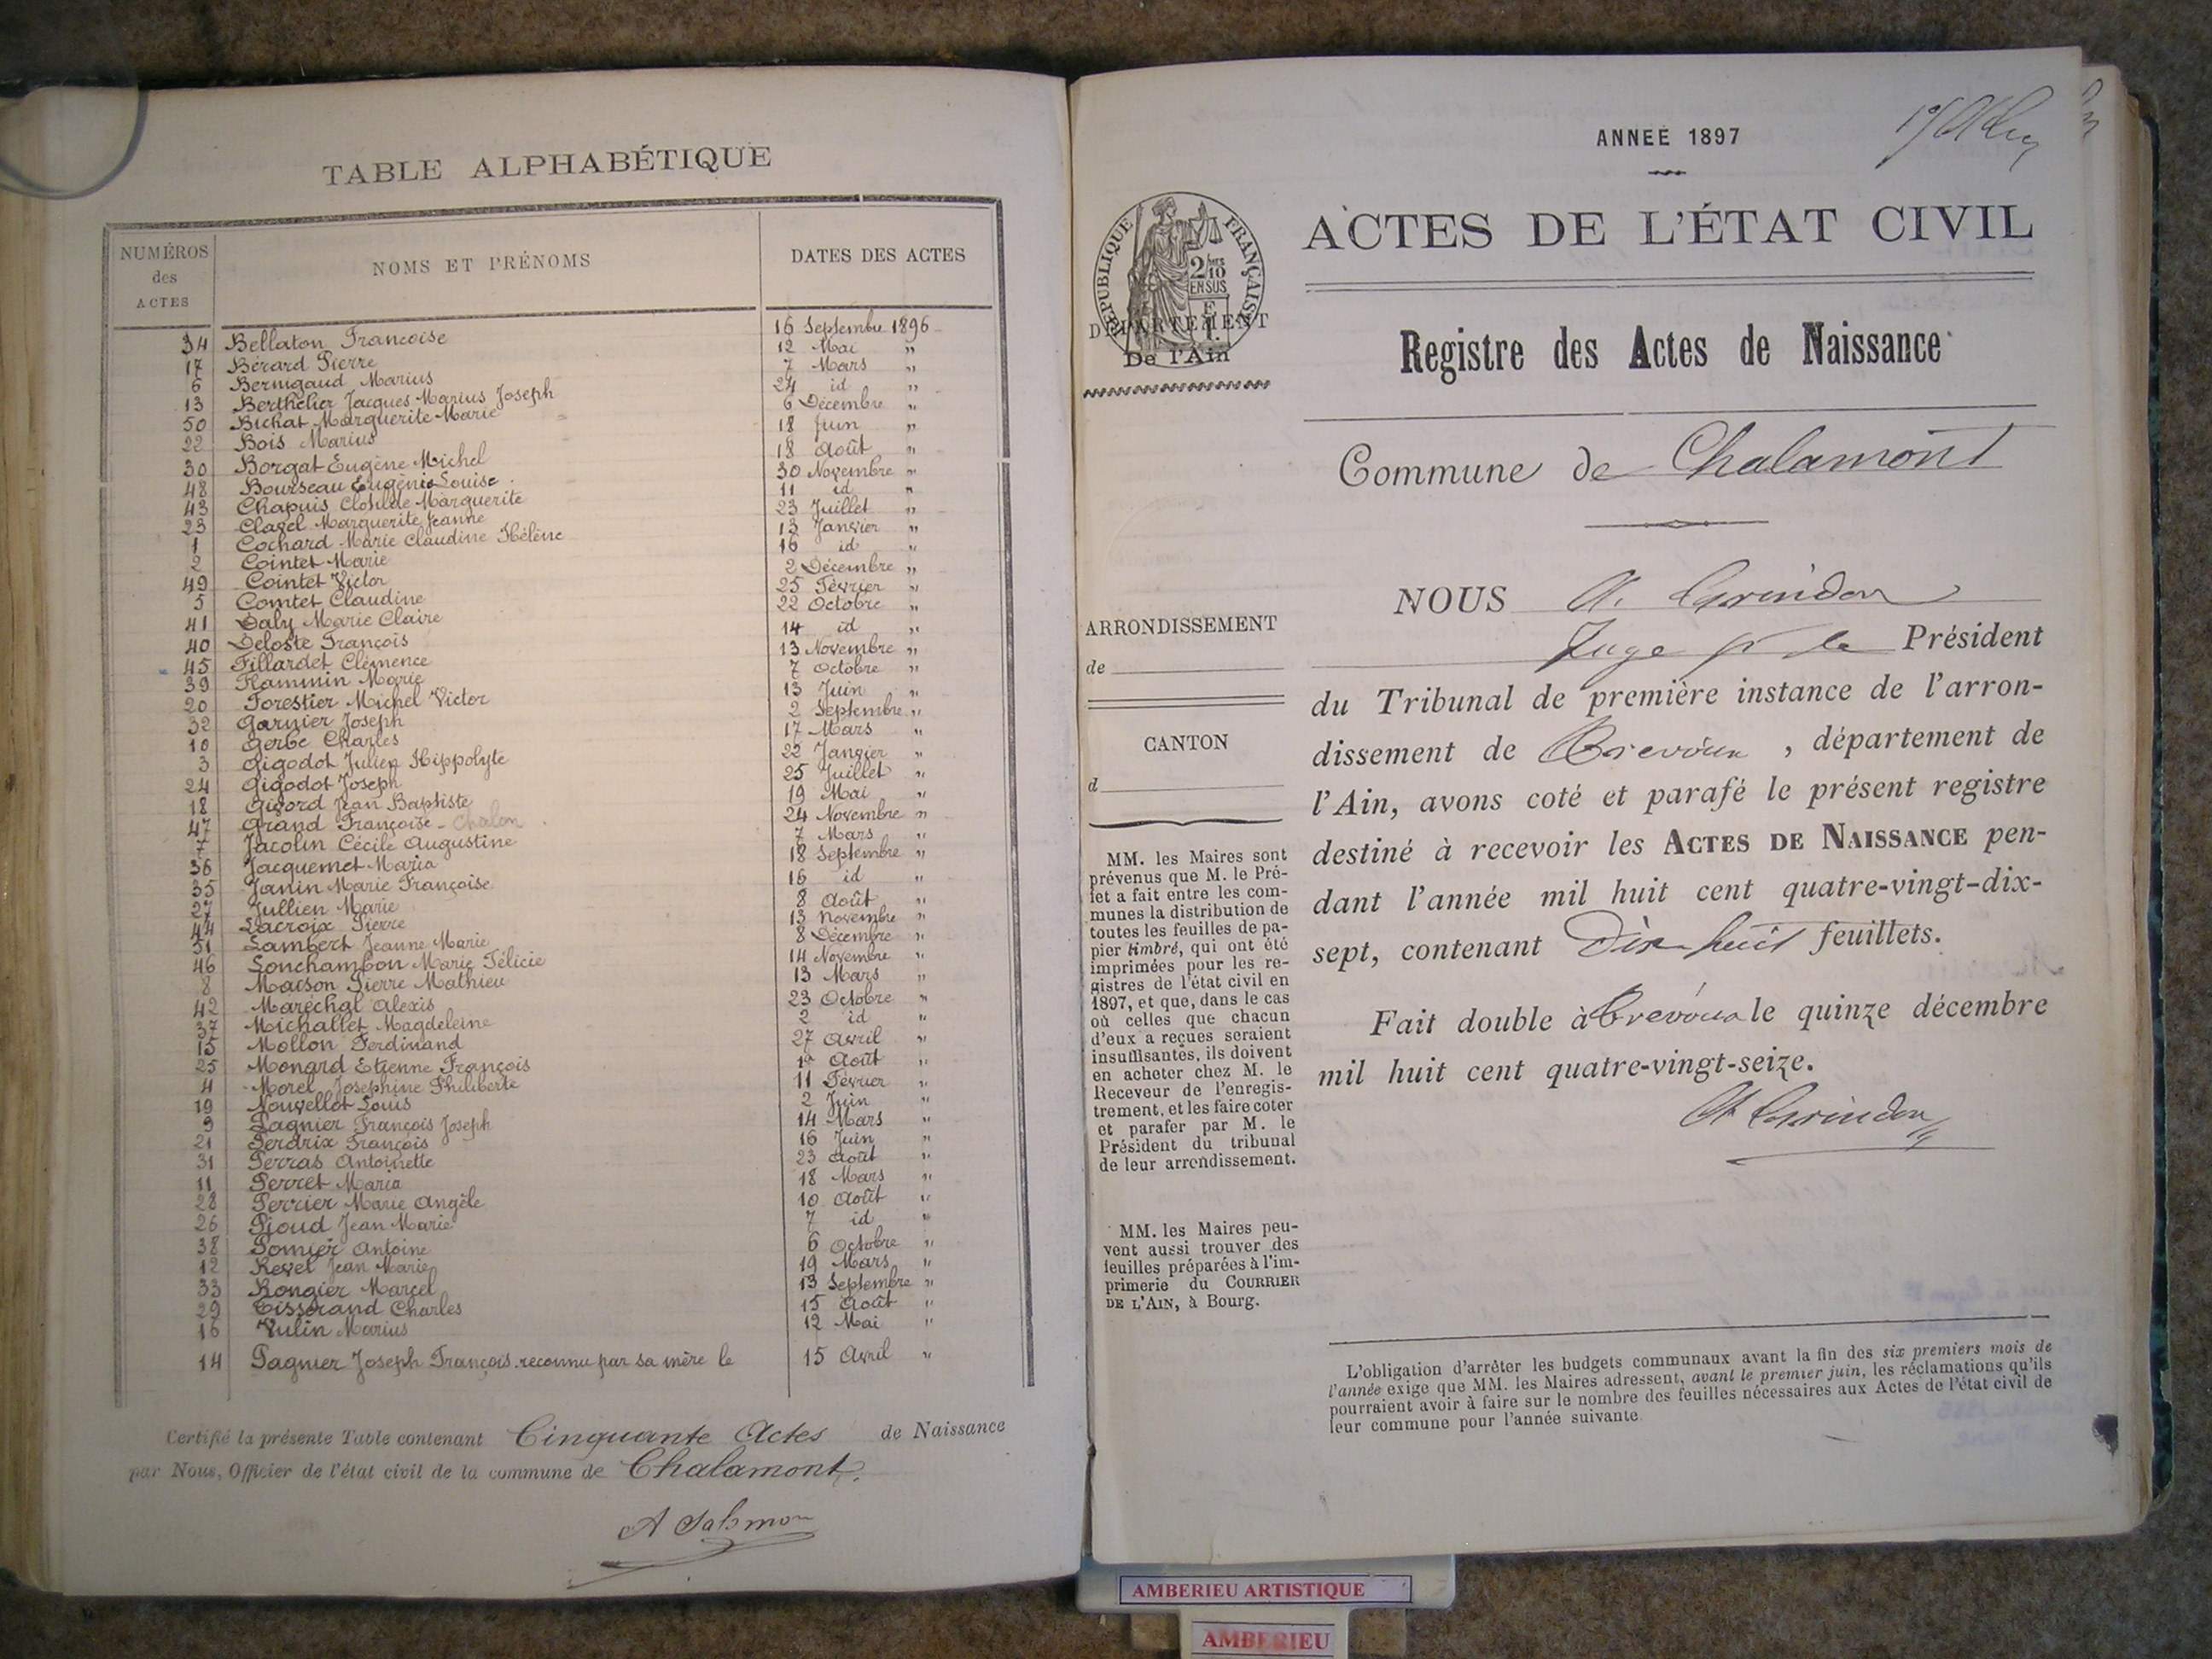 TABLE ALPHABÉTIQUE
NUMÉROS des ACTES NOMS ET PRÉNOMS DATES DES ACTES
34 Bellaton Francoise 16 Septembre 1896
17 Bérard Pierre 12 Mai "
6 Bernigaud Marius 7 Mars "
13 Berthelier Jacques Marius Joseph 24 id "
50 Bichat Marguerite Marie 6 Décembre "
22 Bois Marius 18 Juin "
30 Borgat Eugène Michel 18 Août "
48 Bourseau Eugénie Louise 30 Novembre "
43 Chapuis Clotilde Marguerite 11 id "
23 Clavel Marguerite Jeanne 23 Juillet "
1 Cochard Marie Claudine Hélène 13 Janvier "
2 Cointet Marie 16 id "
49 Cointet Victor 2 Décembre "
5 Comtet Claudine 25 Février "
41 Daly Marie Claire 22 Octobre "
40 Deloste François 14 id "
45 Fillardet Clémence 13 Novembre "
39 Flammin Marie 7 Octobre "
20 Forestier Michel Victor 13 Juin "
32 Garnier Joseph 2 Septembre "
10 Gerbe Charles 17 Mars "
3 Gigodot Julien Hippolyte 22 Janvier "
24 Gigodot Joseph 25 Juillet "
18 Givord Jean Baptiste 19 Mai "
47 Grand Françoise - Chalon 24 Novembre "
7 Jacolin Cécile Augustine 7 Mars "
36 Jacquemet Maria 18 Septembre "
35 Janin Marie Françoise 16 id "
27 Jullien Marie 8 Août "
44 Lacroix Pierre 13 Novembre "
51 Lambert Jeanne Marie 8 Décembre "
46 Lonchambon Marie Félicie 14 Novembre "
8 Maison Pierre Mathieu 13 Mars "
42 Maréchal Alexis 23 Octobre "
37 Michallet Magdeleine 2 id "
15 Mollon Ferdinand 27 Avril "
25 Monard Etienne François 1er Août "
4 Morel Josephine Philiberte 11 Février "
19 Nouvellot Louis 2 Juin "
9 Pagnier François Joseph 14 Mars "
21 Perdrix François 16 Juin "
31 Perras Antoinette 23 Août "
11 Perret Maria 18 Mars "
28 Perrier Marie Angèle 10 Août "
26 Pioud Jean Marie 7 id "
38 Pomier Antoine 6 Octobre "
12 Revel Jean Marie 19 Mars "
33 Rongier Marcel 13 Septembre "
29 Tisserand Charles 15 Août "
16 Vulin Marius 12 Mai "
14 Pagnier Joseph François reconnu par sa mère le 15 Avril "
Certifié la présente Table contenant Cinquante Actes de Naissance
par Nous, Officier de l'état civil de la commune de Chalamont.
A Salomon
ANNÉE 1897
RÉPUBLIQUE FRANÇAISE
2/10 EN SUS
DÉPARTEMENT
De l'Ain
ACTES DE L'ÉTAT CIVIL
Registre des Actes de Naissance
Commune de Chalamont
ARRONDISSEMENT
de
CANTON
d
MM. les Maires sont
prévenus que M. le Pré-
fet a fait entre les com-
munes la distribution de
toutes les feuilles de pa-
pier timbré, qui ont été
imprimées pour les re-
gistres de l'état civil en
1897, et que, dans le cas
où celles que chacun
d'eux a reçues seraient
insuffisantes, ils doivent
en acheter chez M. le
Receveur de l'enregis-
trement, et les faire coter
et parafer par M. le
Président du tribunal
de leur arrondissement.
MM. les Maires peu-
vent aussi trouver des
feuilles préparées à l'im-
primerie du COURRIER
DE L'AIN, à Bourg.
NOUS A. Grindon
Juge pr le Président
du Tribunal de première instance de l'arron-
dissement de Trévoux, département de
l'Ain, avons coté et parafé le présent registre
destiné à recevoir les ACTES DE NAISSANCE pen-
dant l'année mil huit cent quatre-vingt-dix-
sept, contenant Dix huit feuillets.
Fait double à Trévoux le quinze décembre
mil huit cent quatre-vingt-seize.
A Grindon
L'obligation d'arrêter les budgets communaux avant la fin des six premiers mois de
l'année exige que MM. les Maires adressent, avant le premier juin, les réclamations qu'ils
pourraient avoir à faire sur le nombre des feuilles nécessaires aux Actes de l'état civil de
leur commune pour l'année suivante.
AMBERIEU ARTISTIQUE
AMBERIEU